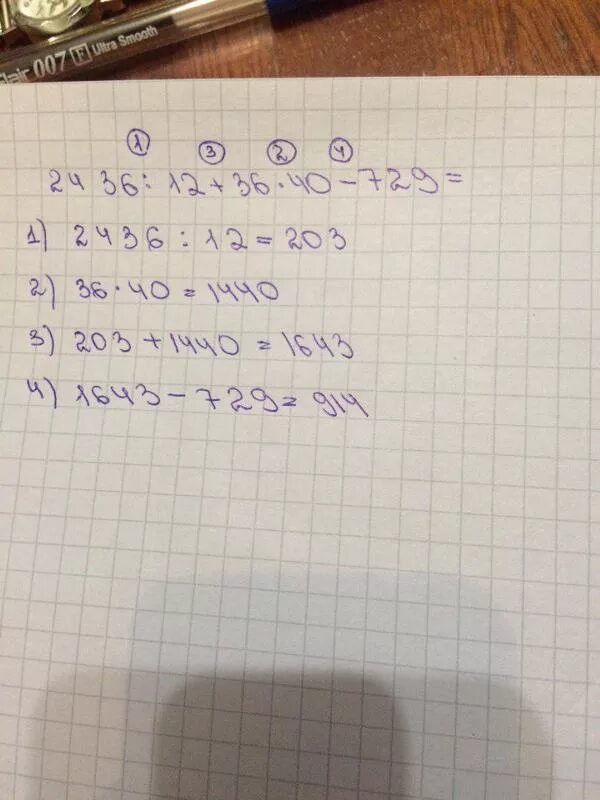 lair 007 F Ultra Smooth
1 3 2 4
2436 : 12 + 36 · 40 - 729 =
1) 2436 : 12 = 203
2) 36 · 40 = 1440
3) 203 + 1440 = 1643
4) 1643 - 729 = 914